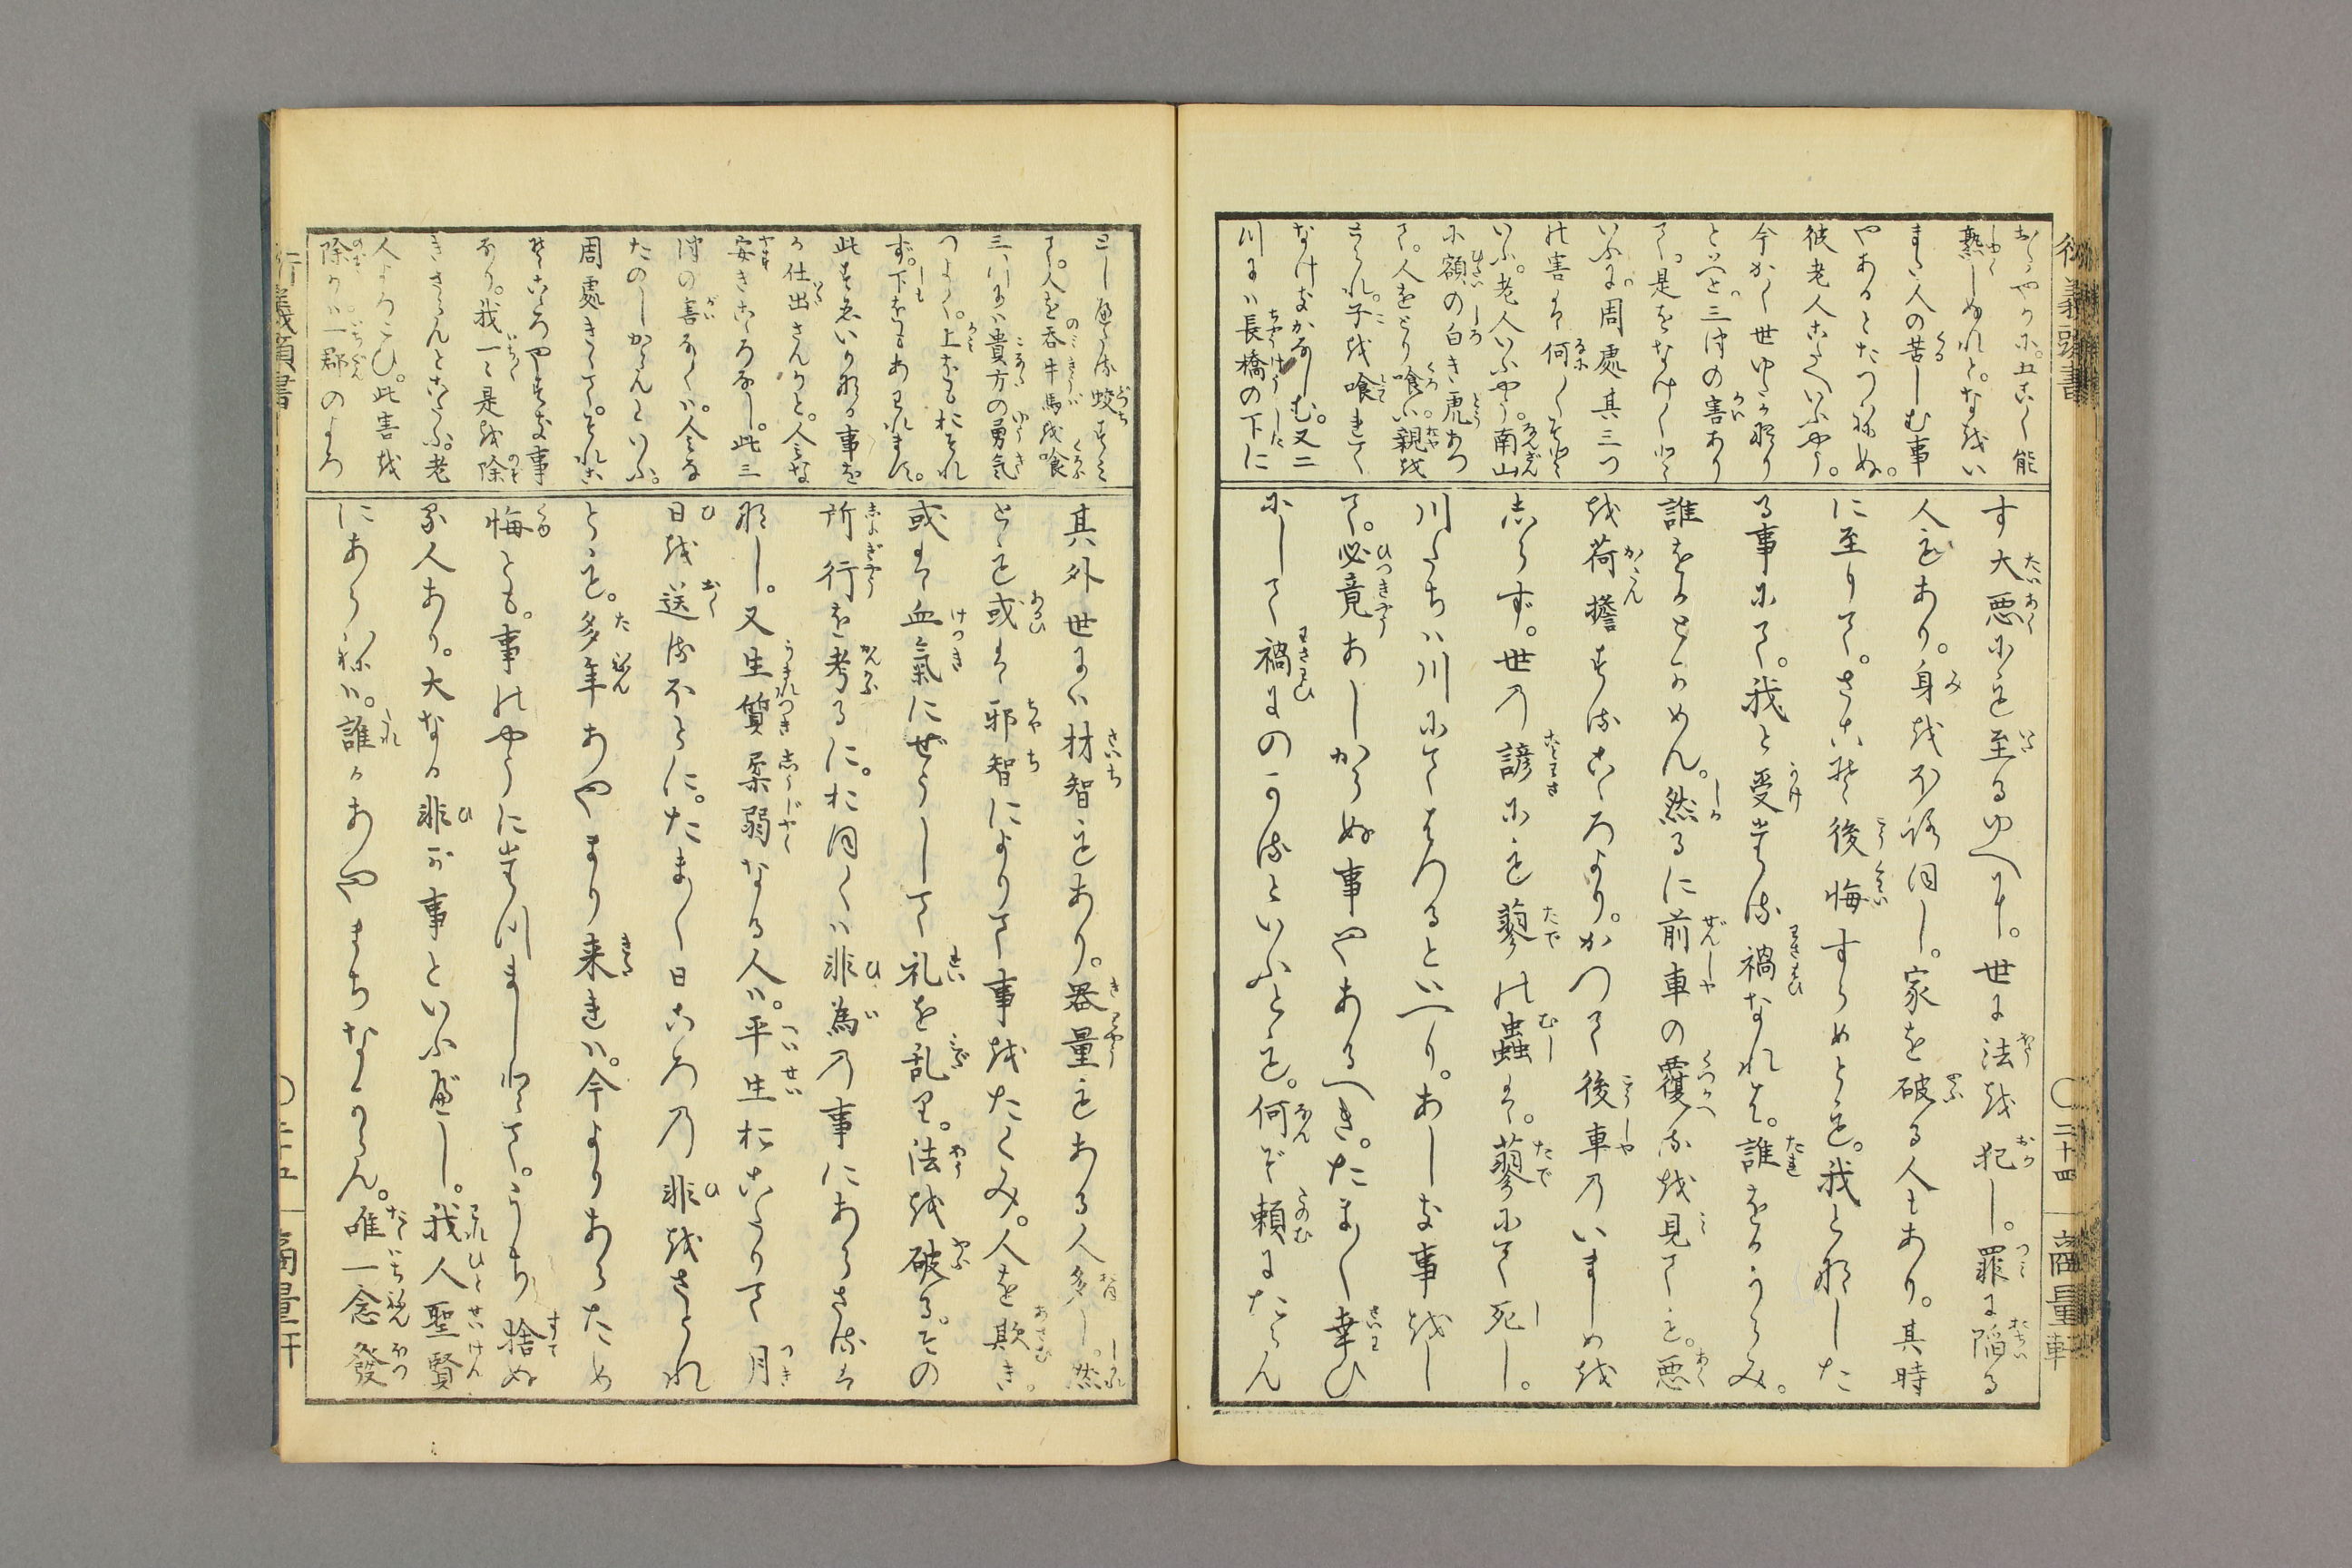 おだやかに。五こく能
熟しぬれど。など
まい人の苦しむ事
やあるとたづねぬ。
彼老人こたへいふやう。
今かく世ゆたかなり
といへど。三津の害あり
て。是をなげくと
いふに。周處其三つ
の害は何〳〵ぞと
いふ。老人いふやう。南山
に額の白き虎あつ
て。人をとり喰ひ。親を
とられ。子を喰れて
なげきかなしむ。又二
川には長橋の下に
す大悪にも至るゆへに。世に法を犯し。罪に陥る
人もあり。身をほろぼし。家を破る人もあり。其時
に至りて。さこそ後悔すらめども。我となした
る事にて。我と受たる禍なれば。誰をかうらみ。
誰をかとがめん。然るに前車の覆るを見ても。悪
を荷擔するこころより。かつて後車のいましめを
しらず。世の諺にも蓼の蟲は。蓼にて死し。
川たちは川にてはつるといへり。あしき事をし
て。必竟あしからぬ事やあるべき。たま〳〵幸ひ
にして禍をのがるといふとも。何ぞ頼にたらん
行義頭書
〇二十四
商量軒
こしへたる蛟すみ
て。人を呑牛馬を喰
三つには貴方の勇気
つよく。上をもおそれ
ず。下をもあはれまず。
此すゑいかなる事を
か仕出さんかと。人みな
安きこころなし。此三
津の害なくば。人みな
たのしからんといふ。
周處きゝて。それこ
そこころやすき事
なり。我一〻是を除
きさらんとこたふ。老
人よろこび。此害を
除かば。一郡のよろ
其外世には材智もあり。器量もある人多し。然
ども或は邪智によりて事をたくみ。人を欺き。
或は血氣にぜうじて礼を乱り。法を破る。その
所行を考るに。おほくは非為の事にあらざるは
なし。又生質柔弱なる人は。平生おこたりて月
日を送るほどに。たま〳〵日ころの非をさとれ
ども。多年あやまり来れば。今よりあらため
悔とも。事のやうにたゝじまじとて。うち捨ぬ
る人あり。大なる非が事といふべし。我人聖賢
にあらねば。誰かあやまちなからん。唯一念發
行義頭書
〇二十五
商量軒